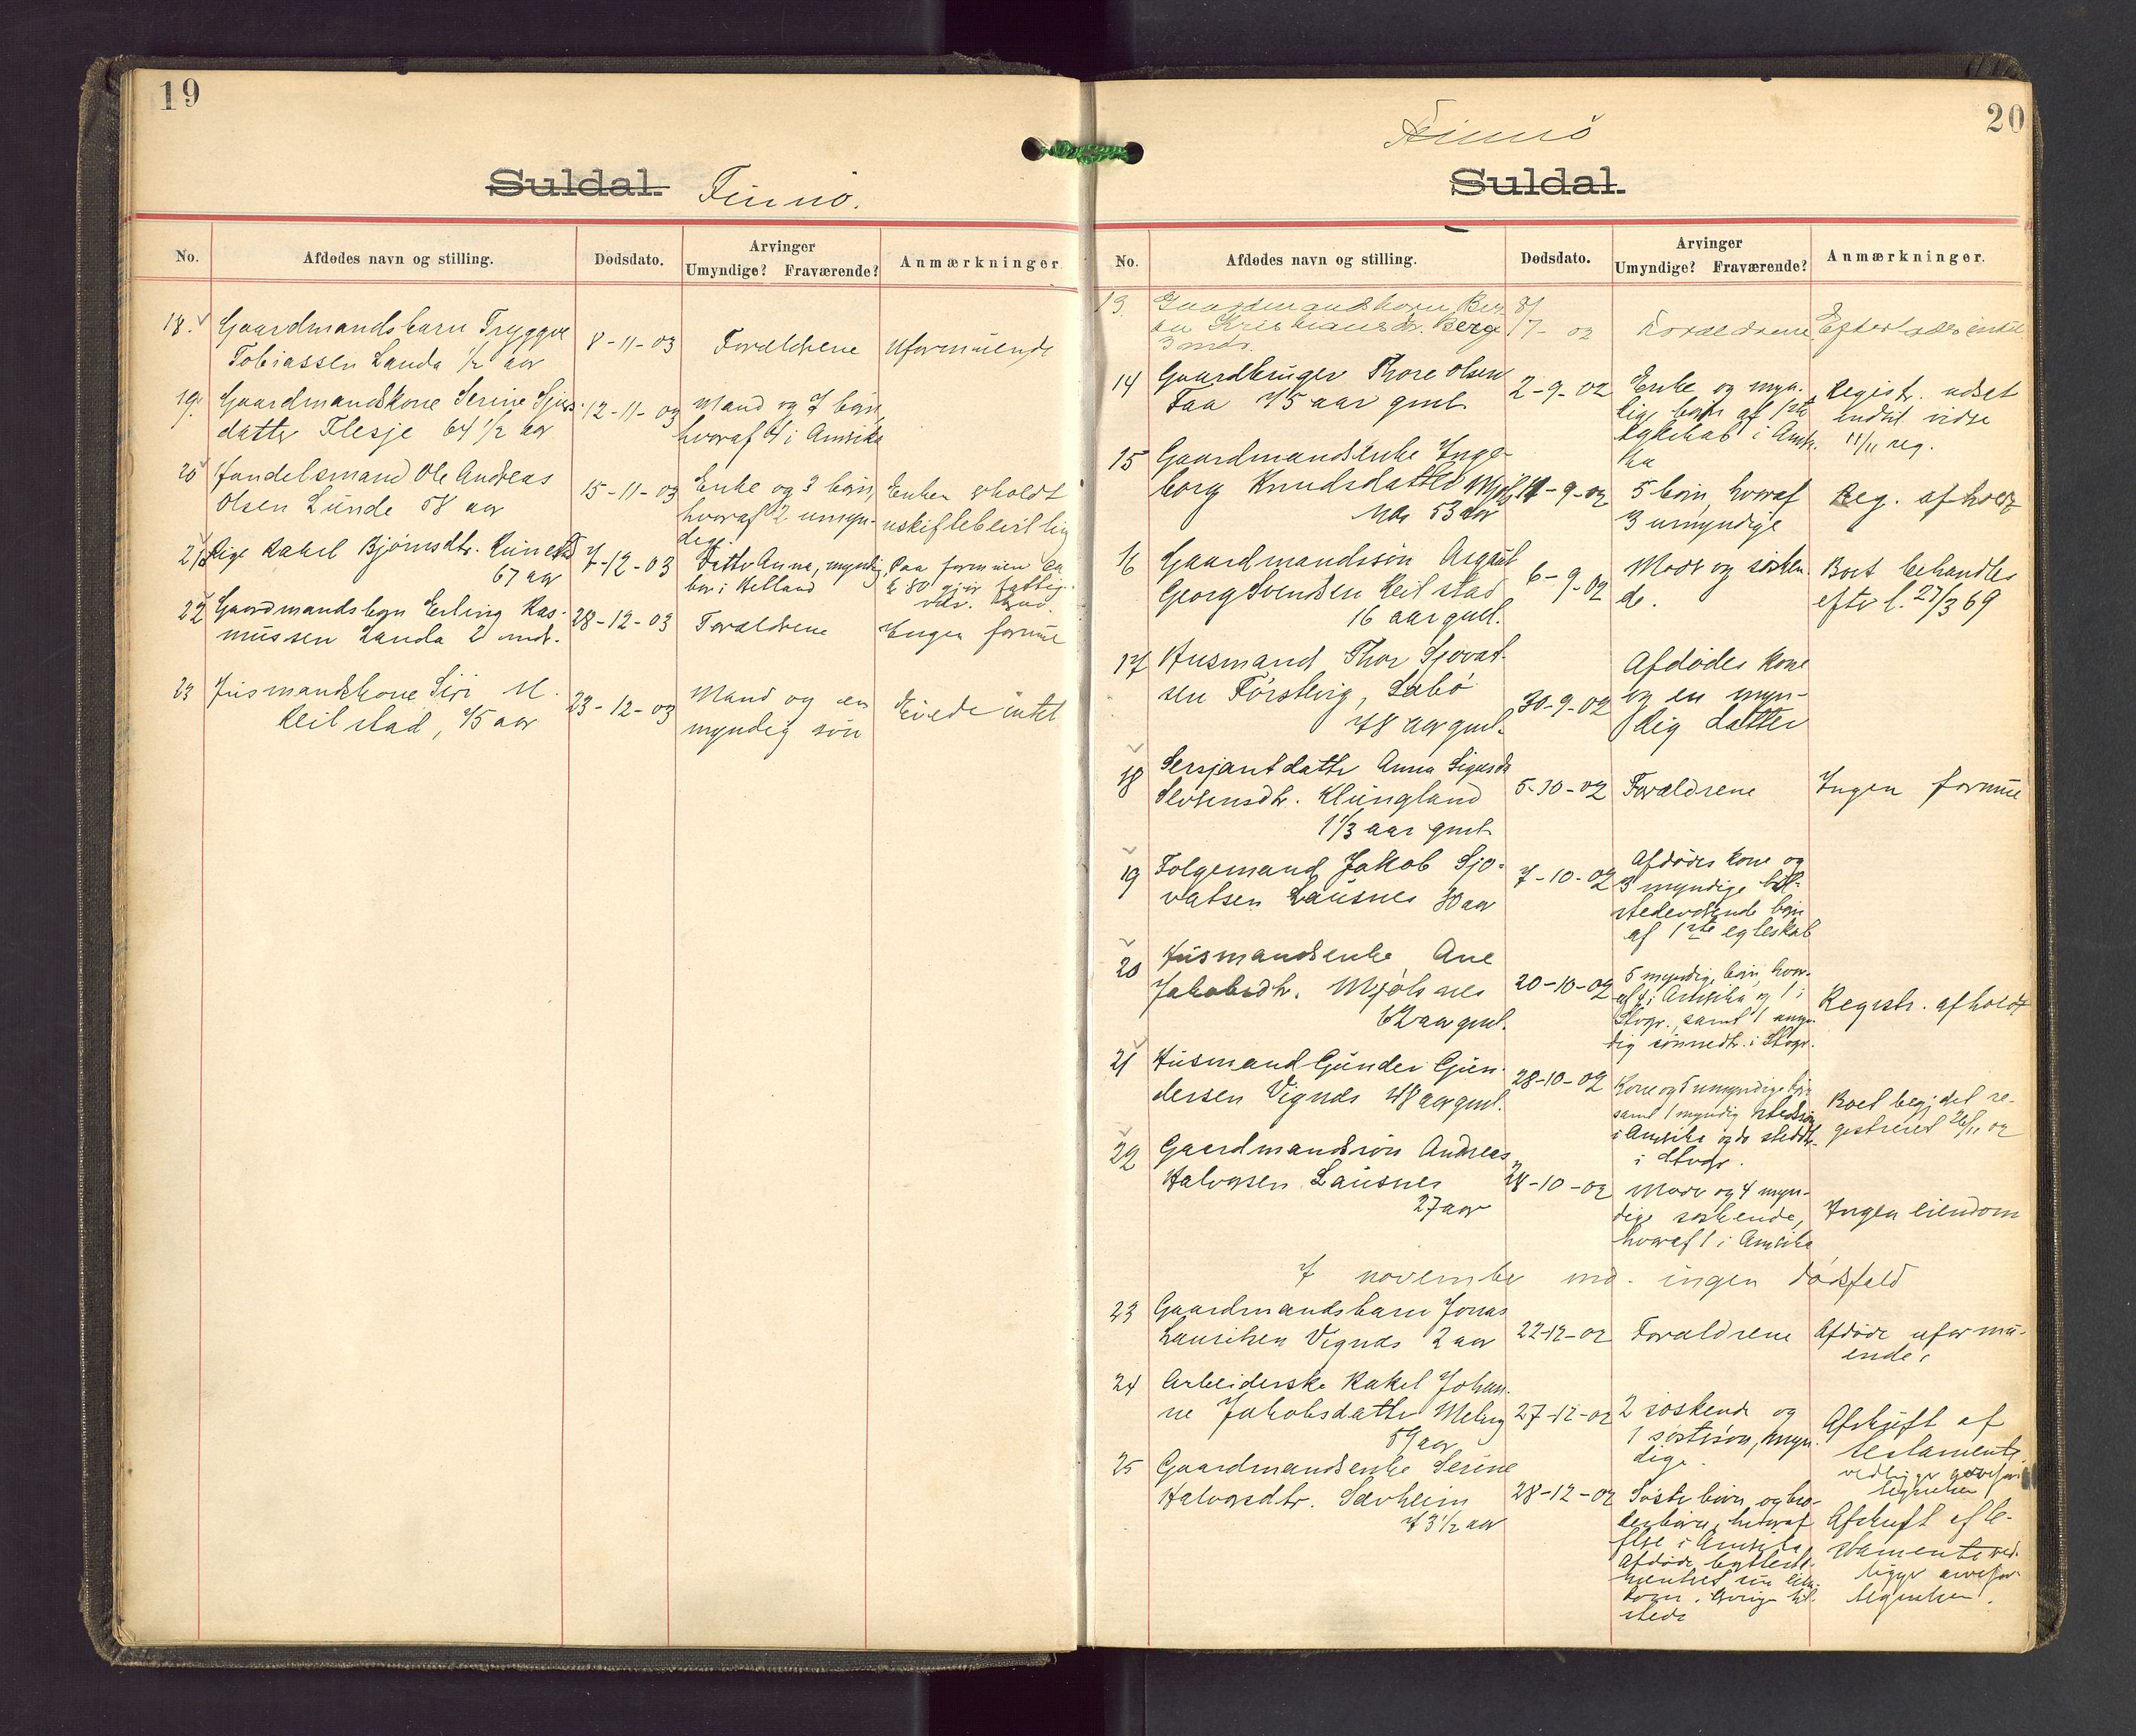 19
Suldal. Finnö.
No.
Afdødes navn og stilling.
Dødsdato.
Arvinger
Umyndige? Fraværende?
Anmærkninger
18.
Gaardmandsbarn Tryggve
Tobiassen Landa 1/2 aar
8-11-03
Forældrene
Uformuende
19.
Gaardmandskone Serine Sjurs-
datter Flesje 64 1/2 aar
12-11-03
Mand og 7 børn,
hvoraf 4 i Amerika
20
Handelsmand Ole Andreas
Olsen Lunde 58 aar
15-11-03
Enke og 3 børn,
hvoraf 2 umyn-
dige
Enken erholdt
uskiftebevilling
21
Pige Rakel Bjørnsdtr.
67 aar
7-12-03
Datter Anna, myndig
bor i Helland
22
Gaardmandsbarn Erling Ras-
mussen Landa 2 mdr.
28-12-03
Forældrene
Ingen formue
23
Husmandskone Siri M.
Reilstad, 75 aar
23-12-03
Mand og en
myndig søn
Eiede intet
20
Finnö
Suldal.
No.
Afdødes navn og stilling.
Dødsdato.
Arvinger
Umyndige? Fraværende?
Anmærkninger.
13.
Gaardmandsbarn
Kristiansdr. Berge
3 mdr.
8/
7- 02
Forældrene
Efterlader intet
14
Gaardbruger Thore Olsen
Faa 75 aar gml.
2-9-02
Enke og myn-
dige børn af 1ste
egteskab i Ameri-
ka
Registr. udsat
indtil videre
11/11 reg.
15
Gaardmandsenke Inge-
borg Knudsdatter Mjøls-
nes 53 aar
11-9-02
5 børn, hvoraf
3 umyndige
Reg. afholdt
16
Gaardmandssøn Asgaut
Georg Svendsen Reilstad
16 aar gml.
6-9-02
Moder og sösken-
de.
Boet behandles
efter l. 27/3 69
17
Husmand Thor Sjovat-
sen Förslevig, Talgö
78 aar gml.
30-9-02
Afdödes kone
og en myn-
dig datter
18
Sersjantdatter Anna Sigurda
Klungland
1 1/3 aar gml.
5-10-02
Forældrene
Ingen formue
19
Folgemand Jakob Sjo-
vatsen Lausnes 80 aar
7-10-02
Afdödes kone og
3 myndige til-
stedeværende børn
af 1ste egteskab
20
Husmandsenke Ane
Jakobsdtr. Mjölsnes
62 aar gml.
20-10-02
5 myndige børn, hvor-
af 4 i Amerika og 1 i
Stvgr., samt 1 umyn-
dig sönnedtr. i Stvgr.
Registr. afholdt
21
Husmand Gunder Gun-
dersen Vignes 48 aar gml.
28-10-02
Kone og 5 umyndige børn
samt 1 myndig stedsøn
i Amerika og 2 steddtr.
i Stvgr.
Boet begj. det re-
gistreret 26/11 02
22
Gaardmandssön Andreas
Halvorsen Lausnes
27 aar
28-10-02
Moder og 4 myn-
dige søskende,
hvoraf 1 i Amerika
Ingen eiendom
I november md. ingen dødsfald
23
Gaardmandsbarn Jonas
Lauritsen Vignes 2 aar
22-12-02
Forældrene
Afdöde uformu-
ende.
24
Arbeiderske Rakel Johan-
ne Jakobsdatter Meling
59 aar
27-12-02
2 söskende og
1 søstersön, myn-
dige.
Afskrift af
testamente
vedligger
25
Gaardmandsenke Serine
Halvorsdtr. Sævheim
73 1/2 aar
28-12-02
Søsterbörn og bro-
derbörn, hvoraf
flere i Amerika
Afskrift af te-
stamente ved-
ligger